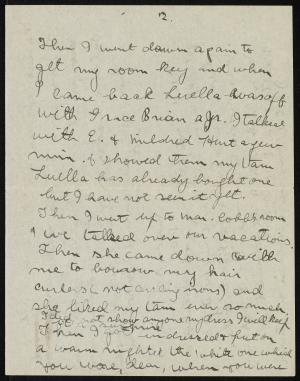 2.
Then I went down again to
get my room key and when
I came back Luella was off
with Grace Brian a Jr. I talked
with E. & Mildred Hunt a few
min. & showed them my tam
Luella has already bought one
but I have not seen it yet.
Then I went up to Mar. Cobb's room
& we talked over our vacations.
Then she came down with
me to borrow my hair
curlers (not curling irons) and
she liked my tam ever so much.
I did not show anyone my dress I will keep
Then I got undressed & put on
a warm nightie the white one which
you wore, dear, when you were